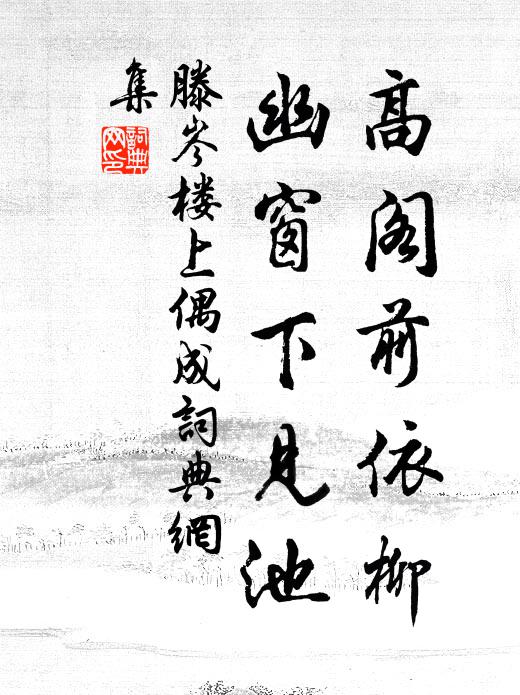 高阁前依柳
幽窗下见池
滕岑楼上偶成詞典網
集
詞典
网印